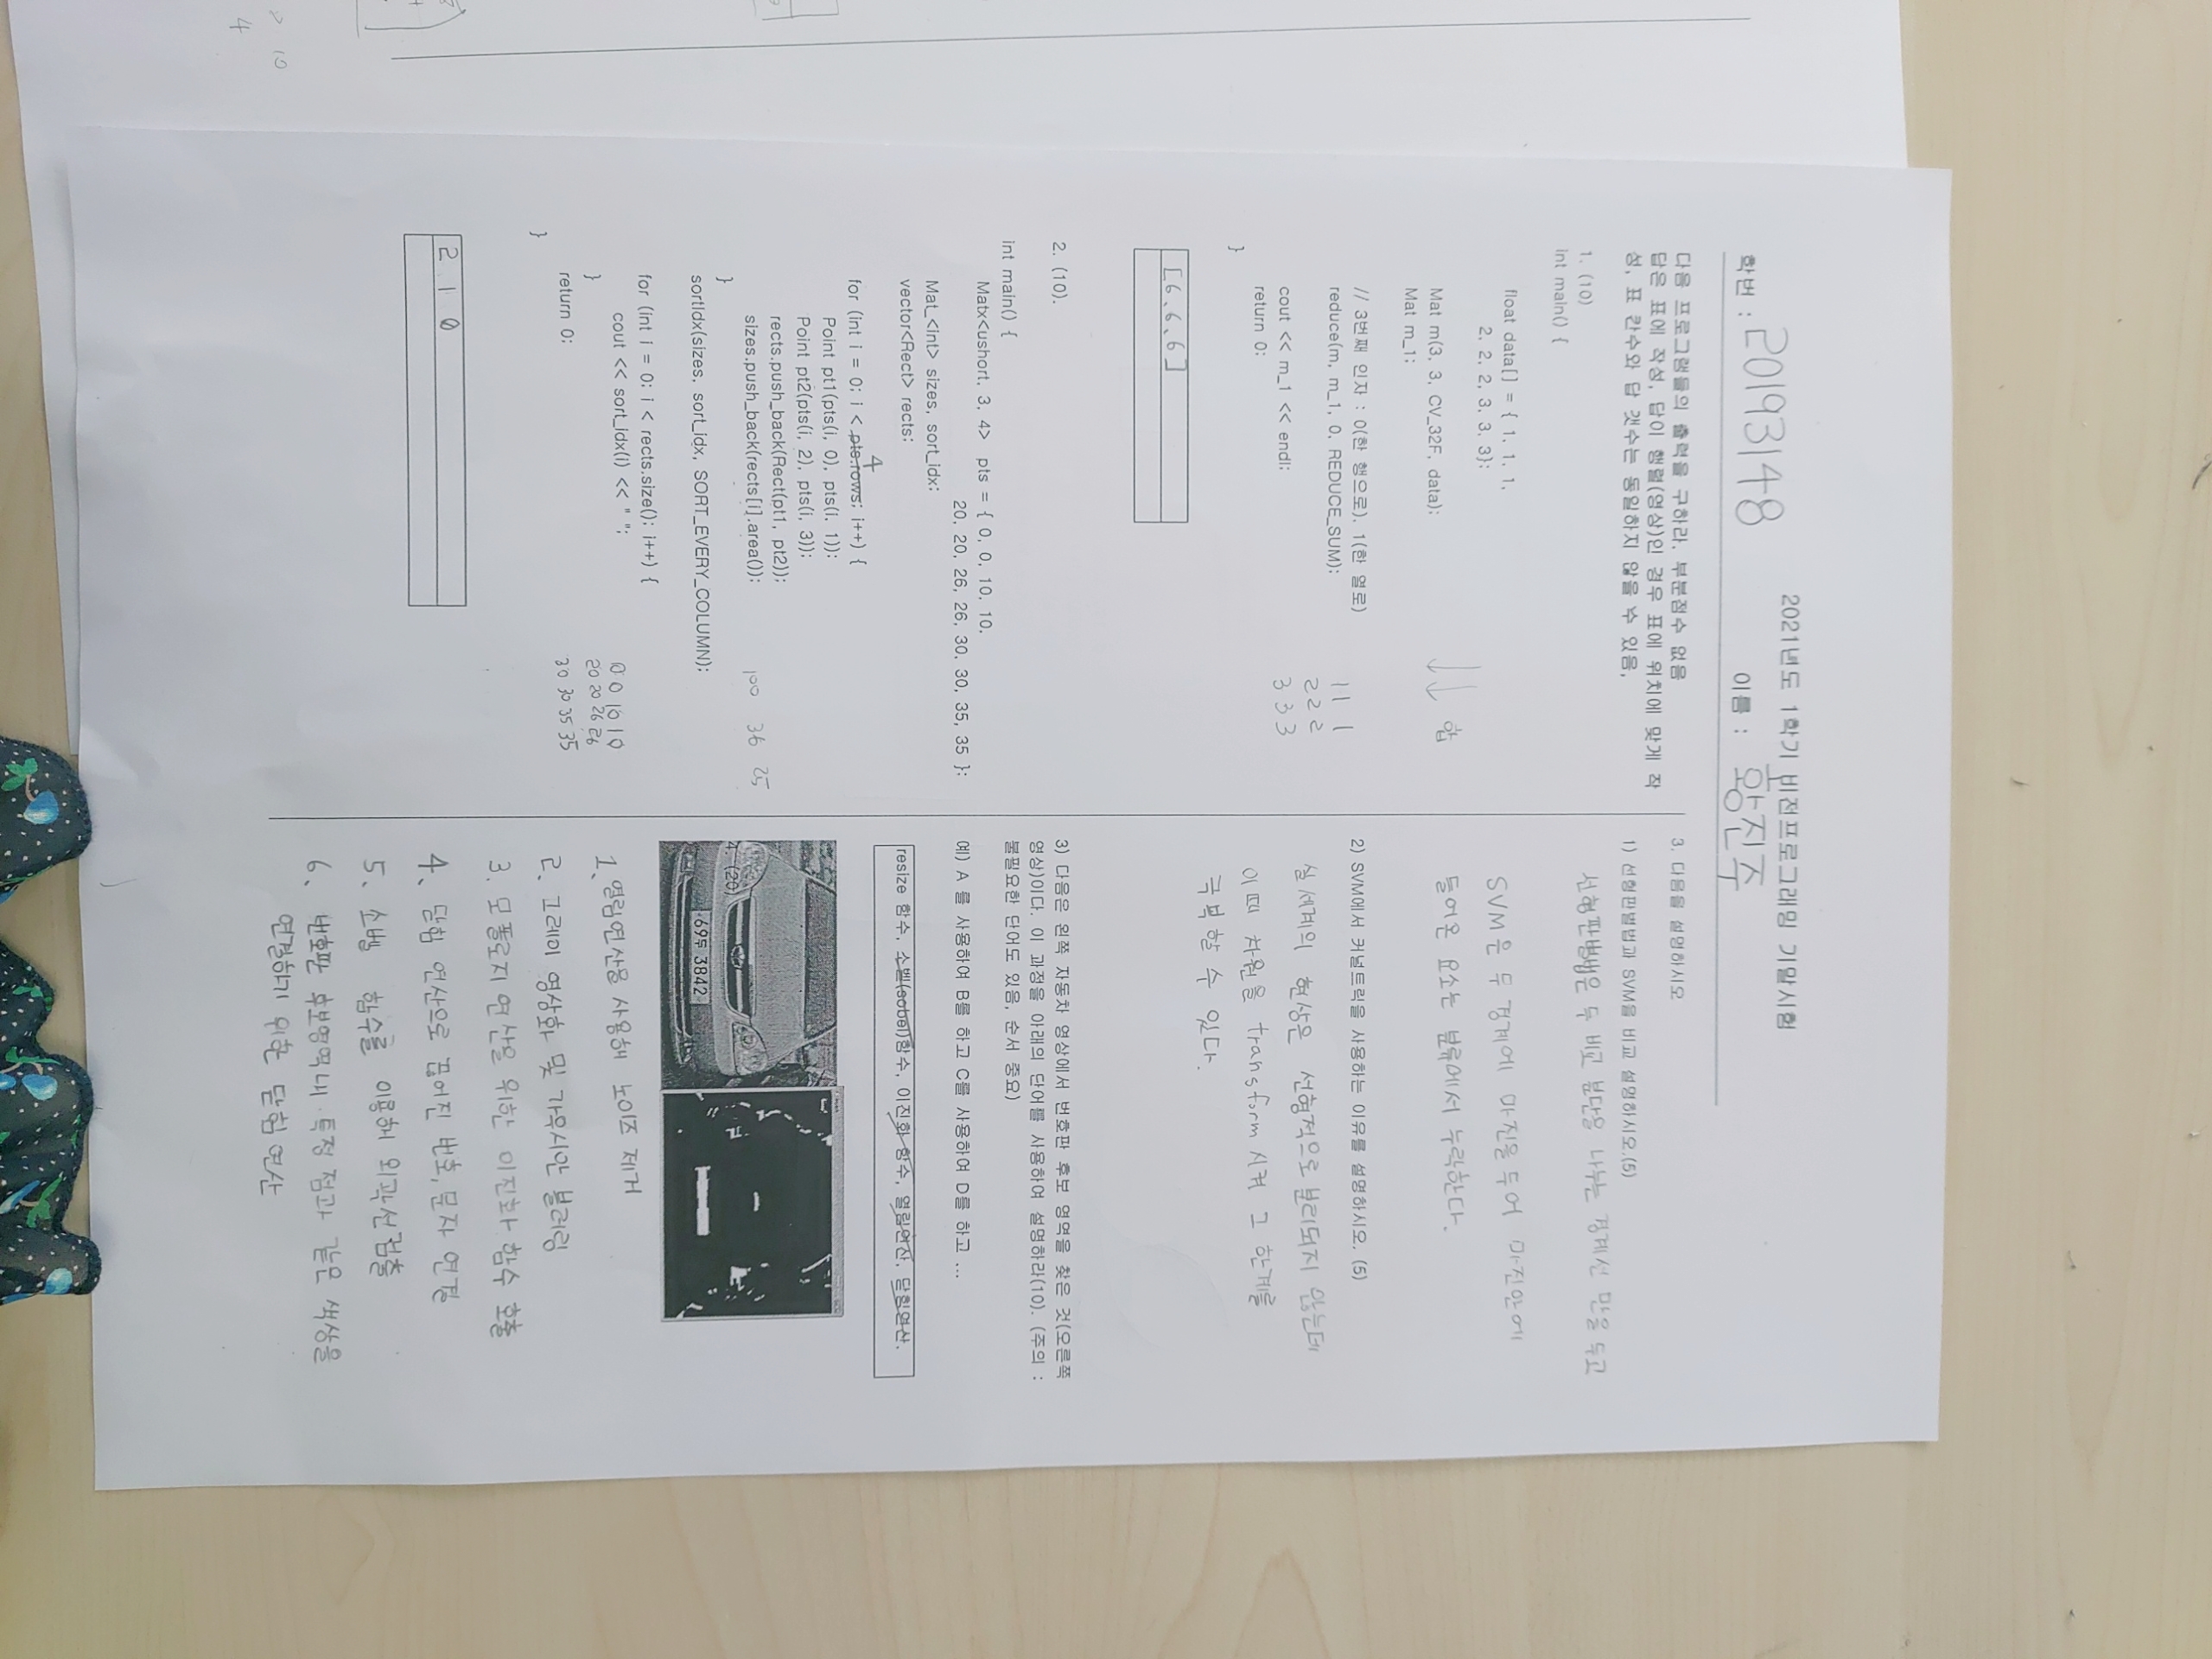 2021년도 1학기 비전프로그래밍 기말시험
학번 : 20193148 이름 : 황진주
다음 프로그램들의 출력을 구하라. 부분점수 없음
답은 표에 작성, 답이 행렬(영상)인 경우 표에 위치에 맞게 작
성, 표 칸수와 답 갯수는 동일하지 않을 수 있음,
1. (10)
int main() {
float data[] = { 1, 1, 1,
2, 2, 2, 3, 3, 3};
합
Mat m(3, 3, CV_32F, data);
Mat m_1;
// 3번째 인자 : 0(한 행으로), 1(한 열로)
reduce(m, m_1, 0, REDUCE_SUM);
1 1 1
2 2 2
3 3 3
cout << m_1 << endl;
return 0;
}
[6, 6, 6]
2. (10).
int main() {
Matx<ushort, 3, 4> pts = { 0, 0, 10, 10,
20, 20, 26, 26, 30, 30, 35, 35 };
Mat_<int> sizes, sort_idx;
vector<Rect> rects;
4
for (int i = 0; i < pts.rows; i++) {
Point pt1(pts(i, 0), pts(i, 1));
Point pt2(pts(i, 2), pts(i, 3));
rects.push_back(Rect(pt1, pt2));
sizes.push_back(rects[i].area()); 100 36 25
}
sortIdx(sizes, sort_idx, SORT_EVERY_COLUMN);
for (int i = 0; i < rects.size(); i++) {
cout << sort_idx(i) << " ";
}
return 0;
}
0 0 10 10
20 20 26 26
30 30 35 35
2 1 0
3. 다음을 설명하시오
1) 선형판별법과 SVM을 비교 설명하시오.(5)
선형판별법은 두 비교 분단을 나누는 경계선 만을 두고
SVM은 두 경계에 마진을 두어 마진안에
들어온 요소는 분류에서 누락한다.
2) SVM에서 커널트릭을 사용하는 이유를 설명하시오. (5)
실세계의 현상은 선형적으로 분리되지 않는데
이때 차원을 transform 시켜 그 한계를
극복할 수 있다.
3) 다음은 왼쪽 자동차 영상에서 번호판 후보 영역을 찾은 것(오른쪽
영상)이다. 이 과정을 아래의 단어를 사용하여 설명하라(10). (주의 :
불필요한 단어도 있음, 순서 중요)
예) A 를 사용하여 B를 하고 C를 사용하여 D를 하고 ...
resize 함수, 소벨(sobel)함수, 이진화 함수, 열림연산, 닫힘연산.
4. (20)
69두 3842
1. 열림연산을 사용해 노이즈 제거
2. 그레이 영상화 및 가우시안 블러링
3. 모폴로지 연산을 위한 이진화 함수 호출
4. 닫힘 연산으로 끊어진 번호, 문자 연결
5. 소벨 함수를 이용해 외곽선 검출
6. 번호판 후보영역내 특정 점과 같은 색상을
연결하기 위한 닫힘 연산
10
4